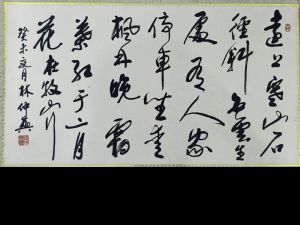 遠上寒山石
徑斜白雲生
處有人家
停車坐愛
楓林晚霜
葉紅于二月
花杜牧山行
癸未夏月林仲興